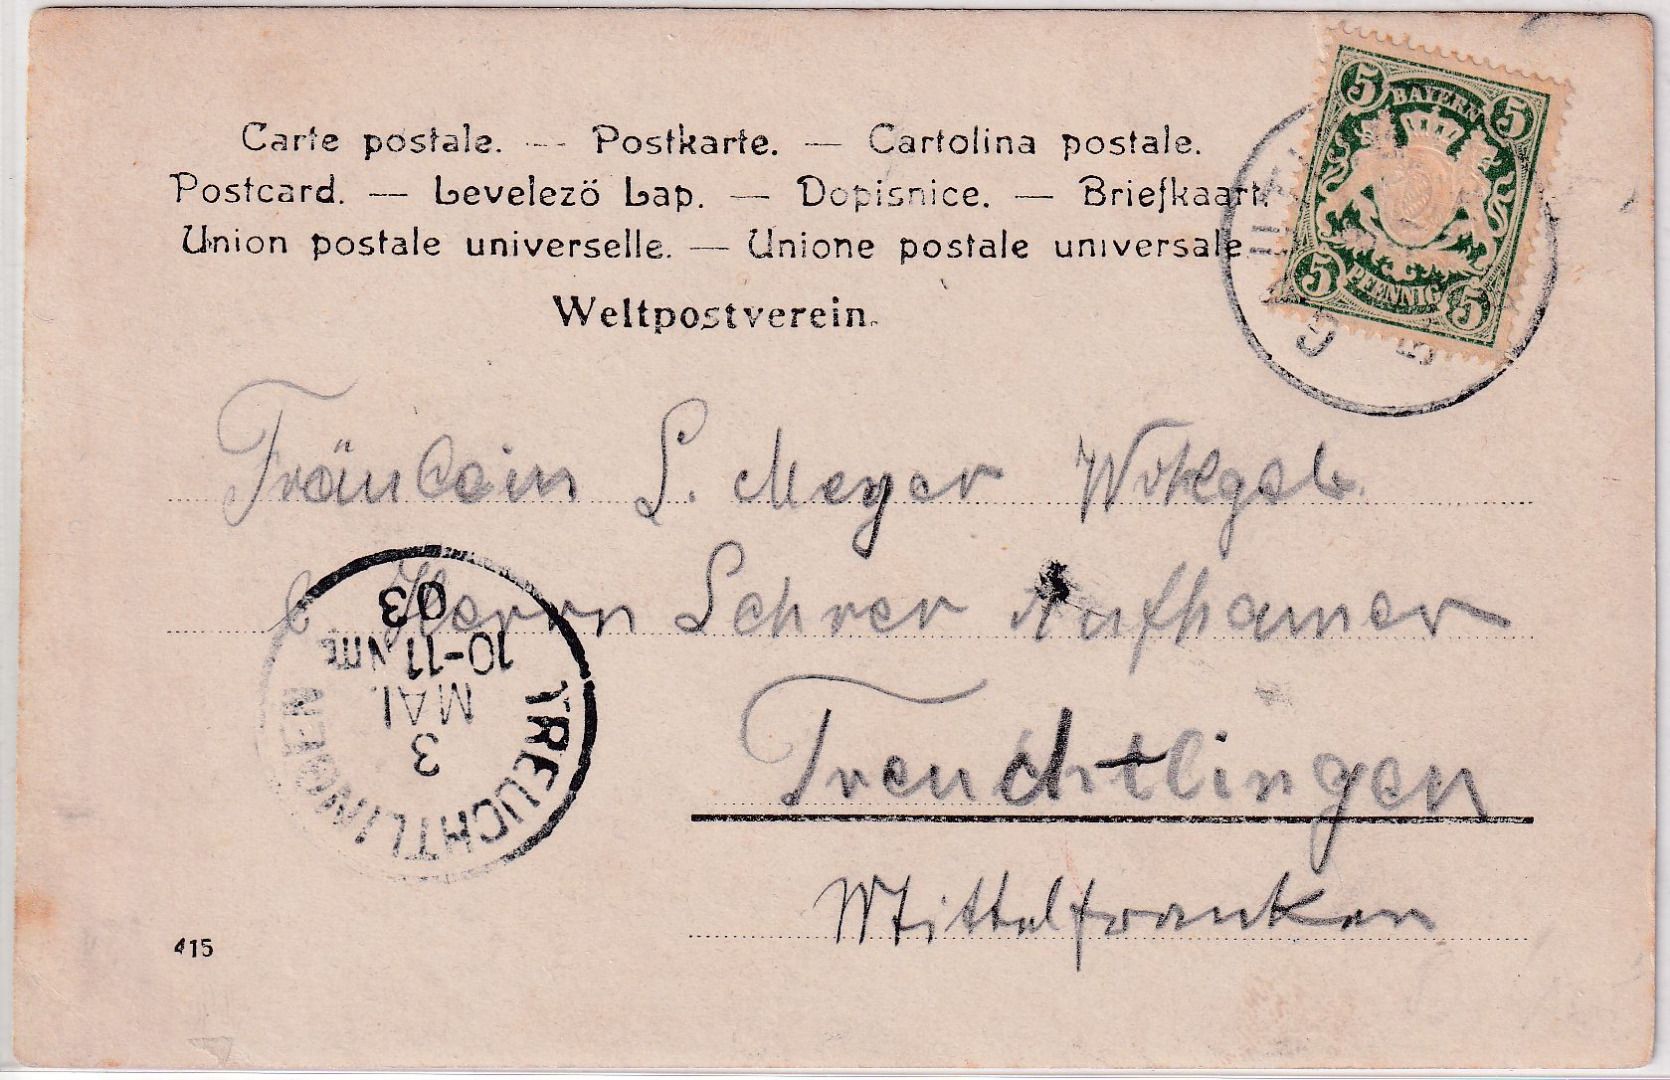 Carte postale. — Postkarte. — Cartolina postale.
Postcard. — Levelező Lap. — Dopisnice. — Briefkaart.
Union postale universelle. — Unione postale universale.
Weltpostverein.
5 BAYERN 5
5 PFENNIG 5
Fräulein L. Meyer Wohlgeb.
b. Herrn Lehrer Aufhamer
Treuchtlingen
Mittelfranken
TREUCHTLINGEN
3
MAI
10-11 Nm
03
415